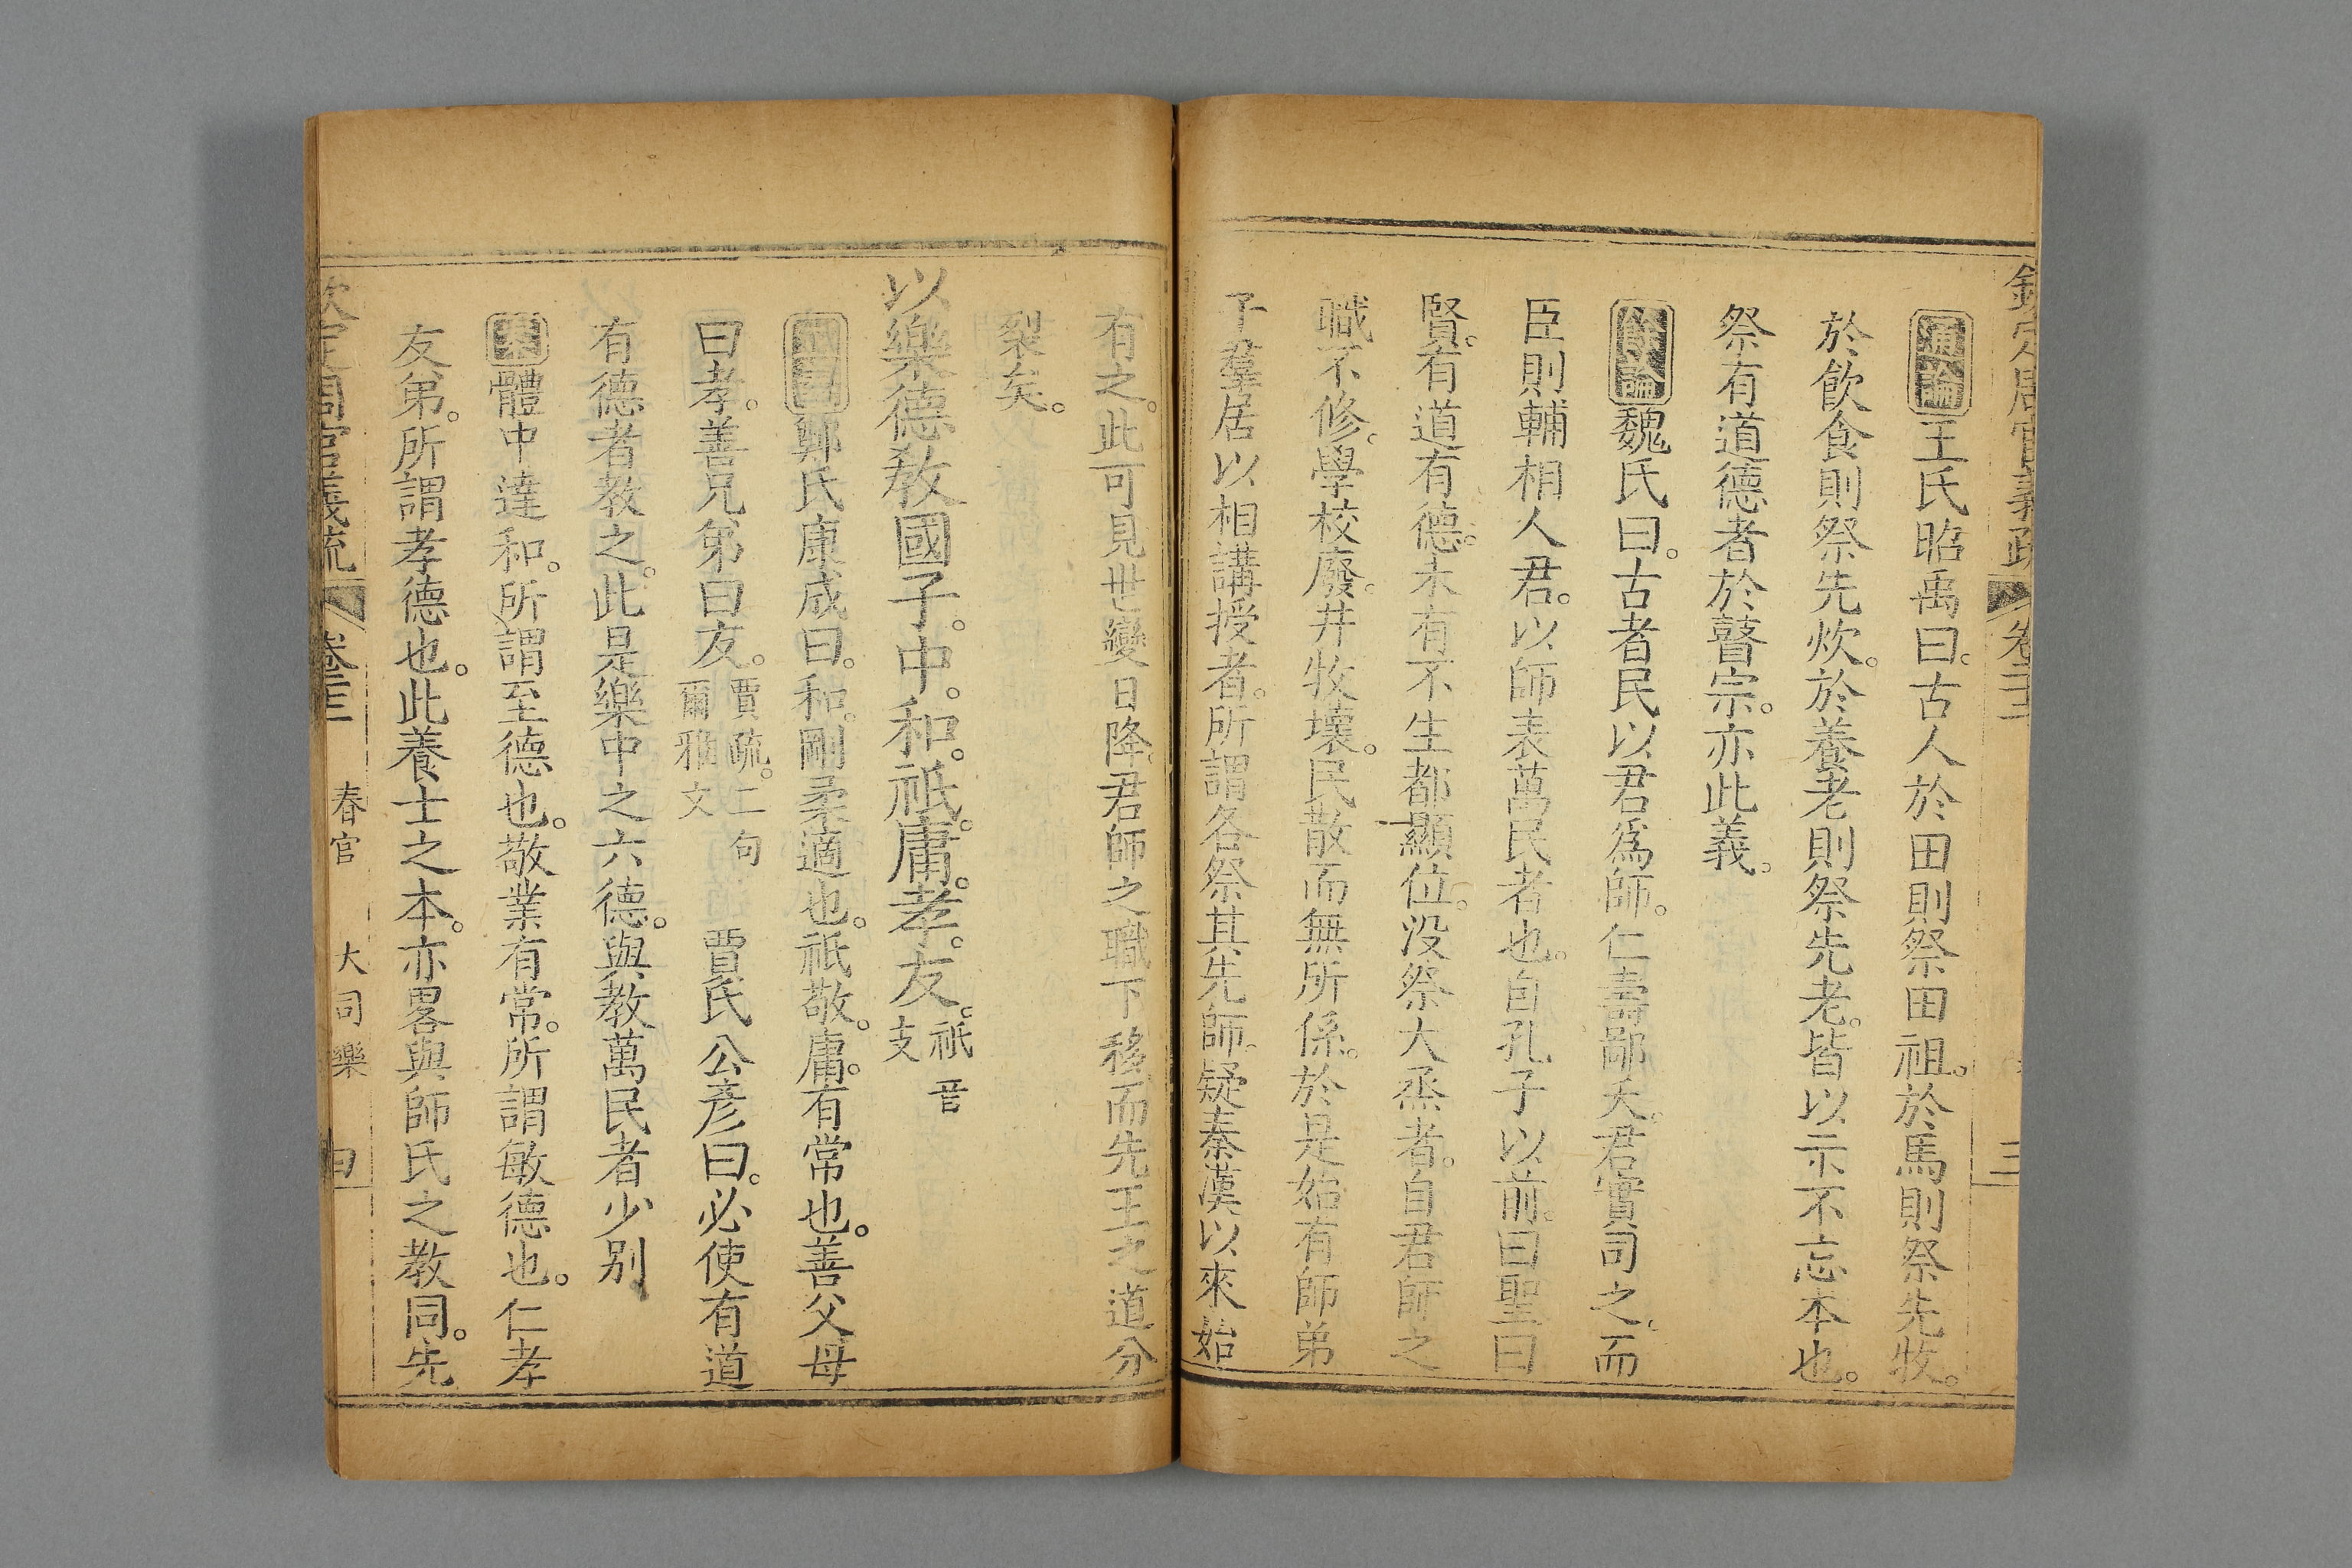 欽定周官義疏 卷二十二 三
通論王氏昭禹曰。古人於田則祭田祖。於馬則祭先牧。
於飲食則祭先炊。於養老則祭先老。皆以示不忘本也。
祭有道德者於瞽宗。亦此義。
餘論魏氏曰。古者民以君爲師。仁壽鄙夭。君實司之。而
臣則輔相人君。以師表萬民者也。自孔子以前。曰聖曰
賢。有道有德。未有不生都顯位。没祭大烝者。自君師之
職不修。學校廢。井牧壞。民散而無所係。於是始有師弟
子羣居以相講授者。所謂各祭其先師。疑秦漢以來始
有之。此可見世變日降。君師之職下移。而先王之道分
裂矣。
以樂德敎國子。中。和。祗。庸。孝。友。祗音
支
鄭氏康成曰。和。剛柔適也。祗敬。庸。有常也。善父母
曰孝。善兄弟曰友。賈疏。二句
爾雅文
賈氏公彥曰。必使有道
有德者教之。此是樂中之六德。與教萬民者少別
案體中達和。所謂至德也。敬業有常。所謂敏德也。仁孝
友弟。所謂孝德也。此養士之本。亦畧與師氏之教同。先
欽定周官義疏 卷二十二 春官 大司樂 四